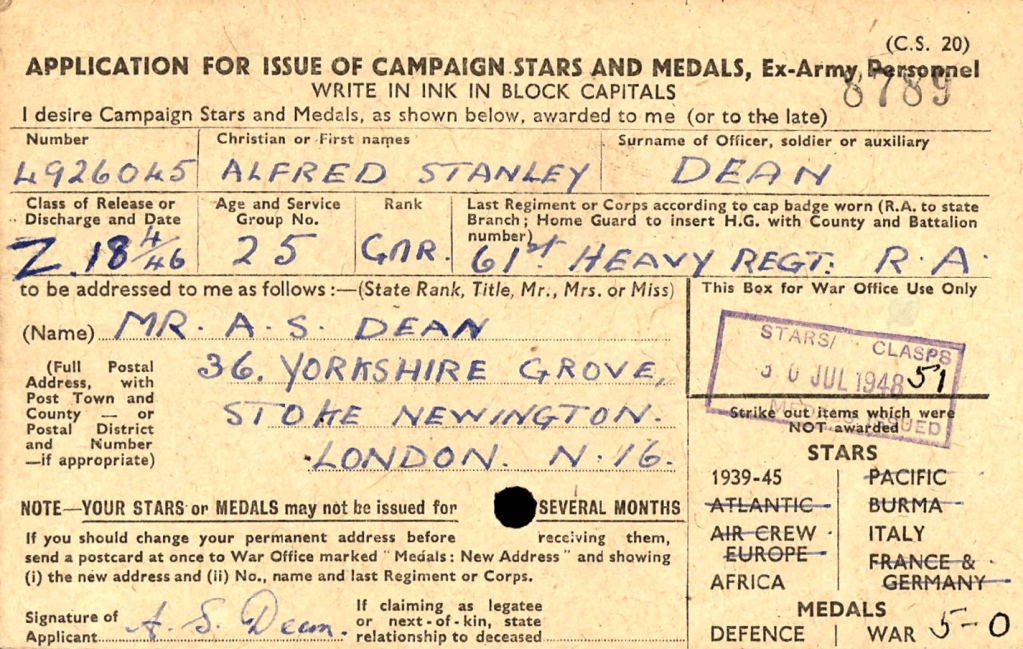 (C.S. 20)
APPLICATION FOR ISSUE OF CAMPAIGN STARS AND MEDALS, Ex-Army Personnel
8789
WRITE IN INK IN BLOCK CAPITALS
I desire Campaign Stars and Medals, as shown below, awarded to me (or to the late)
Number Christian or First names Surname of Officer, soldier or auxiliary
4926045 ALFRED STANLEY DEAN
Class of Release or Discharge and Date
Z. 18 4/46
Age and Service Group No.
25
Rank
GNR.
Last Regiment or Corps according to cap badge worn (R.A. to state
Branch; Home Guard to insert H.G. with County and Battalion
number)
61st. HEAVY REGT. R.A.
to be addressed to me as follows:—(State Rank, Title, Mr., Mrs. or Miss)
(Name) MR. A. S. DEAN
(Full Postal
Address, with
Post Town and
County — or
Postal District
and Number
—if appropriate)
36, YORKSHIRE GROVE,
STOKE NEWINGTON.
LONDON. N.16.
This Box for War Office Use Only
STARS/ CLASPS
30 JUL 1948
51
MEDALS ISSUED
Strike out items which were
NOT awarded
STARS
1939-45 PACIFIC
ATLANTIC BURMA
AIR CREW ITALY
EUROPE FRANCE &
AFRICA GERMANY
MEDALS
DEFENCE WAR 5-0
NOTE—YOUR STARS or MEDALS may not be issued for SEVERAL MONTHS
If you should change your permanent address before receiving them,
send a postcard at once to War Office marked "Medals: New Address" and showing
(i) the new address and (ii) No., name and last Regiment or Corps.
Signature of
Applicant A. S. Dean.
If claiming as legatee
or next-of-kin, state
relationship to deceased